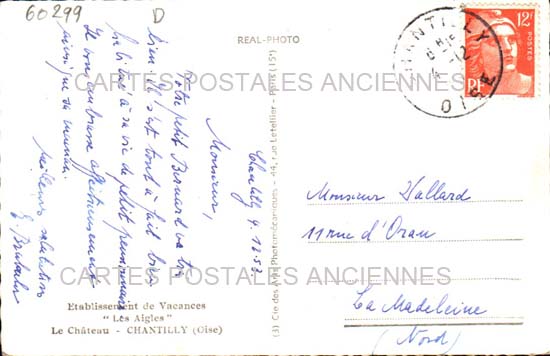 60299
D
REAL-PHOTO
12F
POSTES
RF
CHANTILLY
OISE
CARTES POSTALES ANCIENNES
Chantilly 4.12.53
Monsieur,
Votre petit Bernard va très
bien. Il s'est tout à fait bien
habitué à sa vie de petit pensionnaire
Il vous embrasse affectueusement
ainsi que sa maman.
Meilleures salutations
Monsieur Vallard
11 rue d'Oran
La Madeleine
(Nord)
CARTES POSTALES ANCIENNES
Etablissement de Vacances
" Les Aigles "
Le Château - CHANTILLY (Oise)
(3) Cie des Arts Photomécaniques - 44, rue Letellier - Paris (15e)